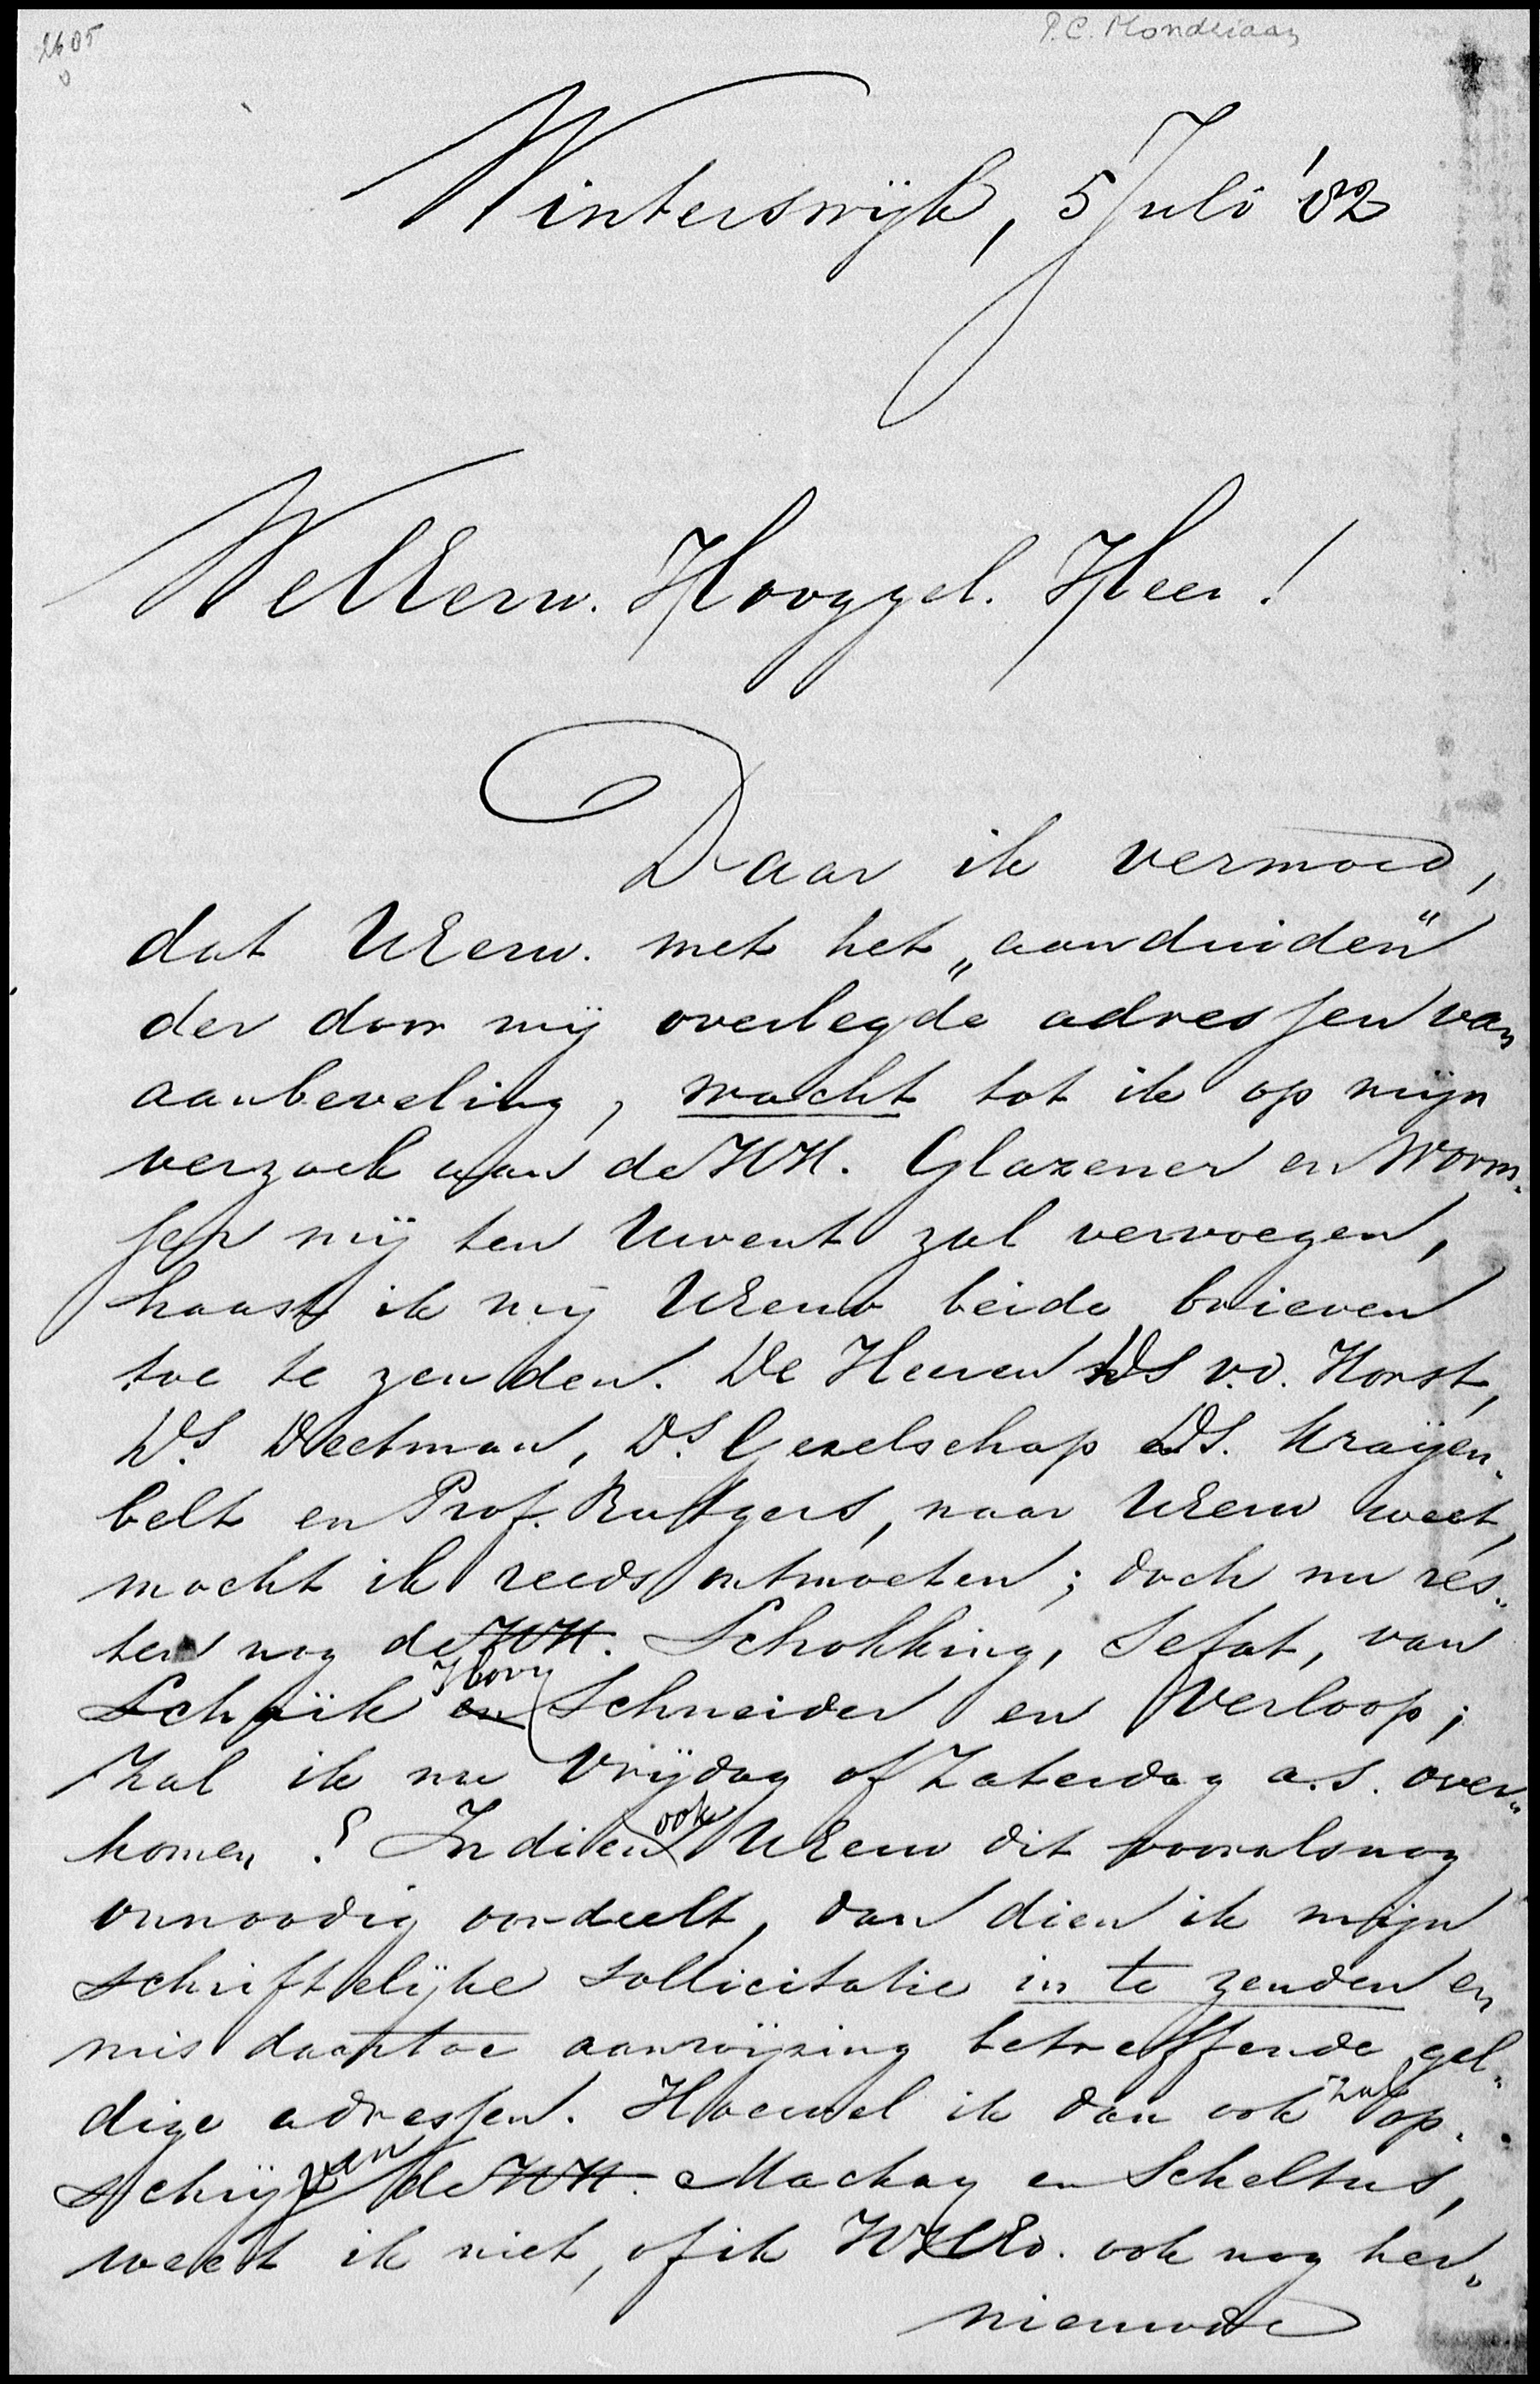 2605
P.C. Mondriaan
Winterswijk, 5 Juli '82
WelEerw. Hooggel. Heer!
Daar ik vermoed,
dat UEerw. met het „aanduiden"
der door mij overlegde adressen van
aanbeveling, wacht tot ik op mijn
verzoek aan de HH. Glazener en Worm-
ser mij ten Uwent zal vervoegen,
haast ik mij UEerw beide brieven
toe te zenden. De Heeren Ds v.d. Horst,
Ds. Deetman, Ds. Gezelschap Ds. Kraijen-
belt en Prof. Rutgers, naar UEerw weet,
mocht ik reeds ontmoeten; doch nu res-
ten nog de HH. Schokking, Sefat, van
Schaik en Hovy Schneider en Verloop;
Zal ik nu Vrijdag of Zaterdag a.s. over-
komen? Indien ook UEerw dit vooralsnog
onnoodig oordeelt, dan dien ik mijn
schriftelijke sollicitatie in te zenden en
mis daartoe aanwijzing betreffende gel-
dige adressen. Hoewel ik dan ook zal op-
schrijven de HH. Mackay en Scheltus,
weet ik niet, of ik HWEd. ook nog her-
nieuwde